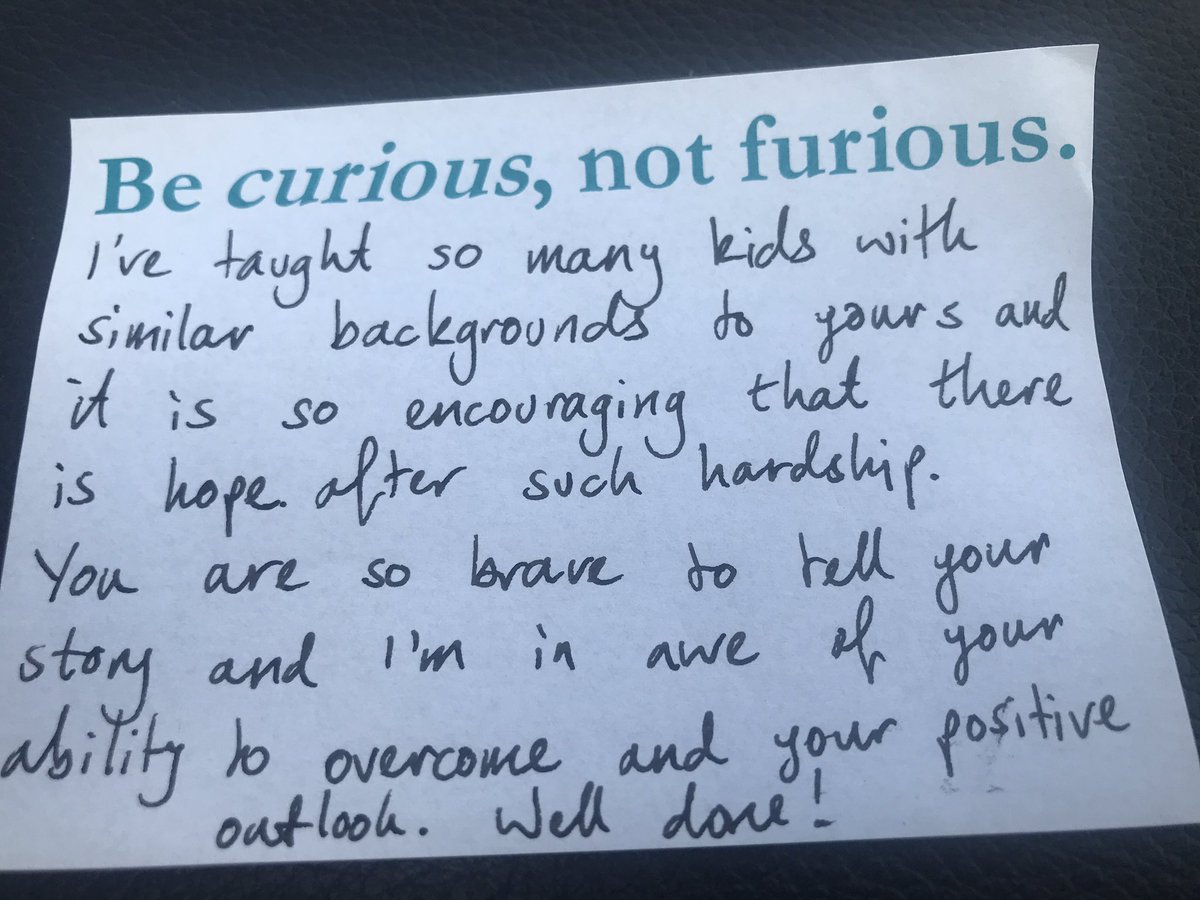 Be curious, not furious.
I've taught so many kids with
similar backgrounds to yours and
it is so encouraging that there
is hope. after such hardship.
You are so brave to tell your
story and I'm in awe of your
ability to overcome and your positive
outlook. Well done!